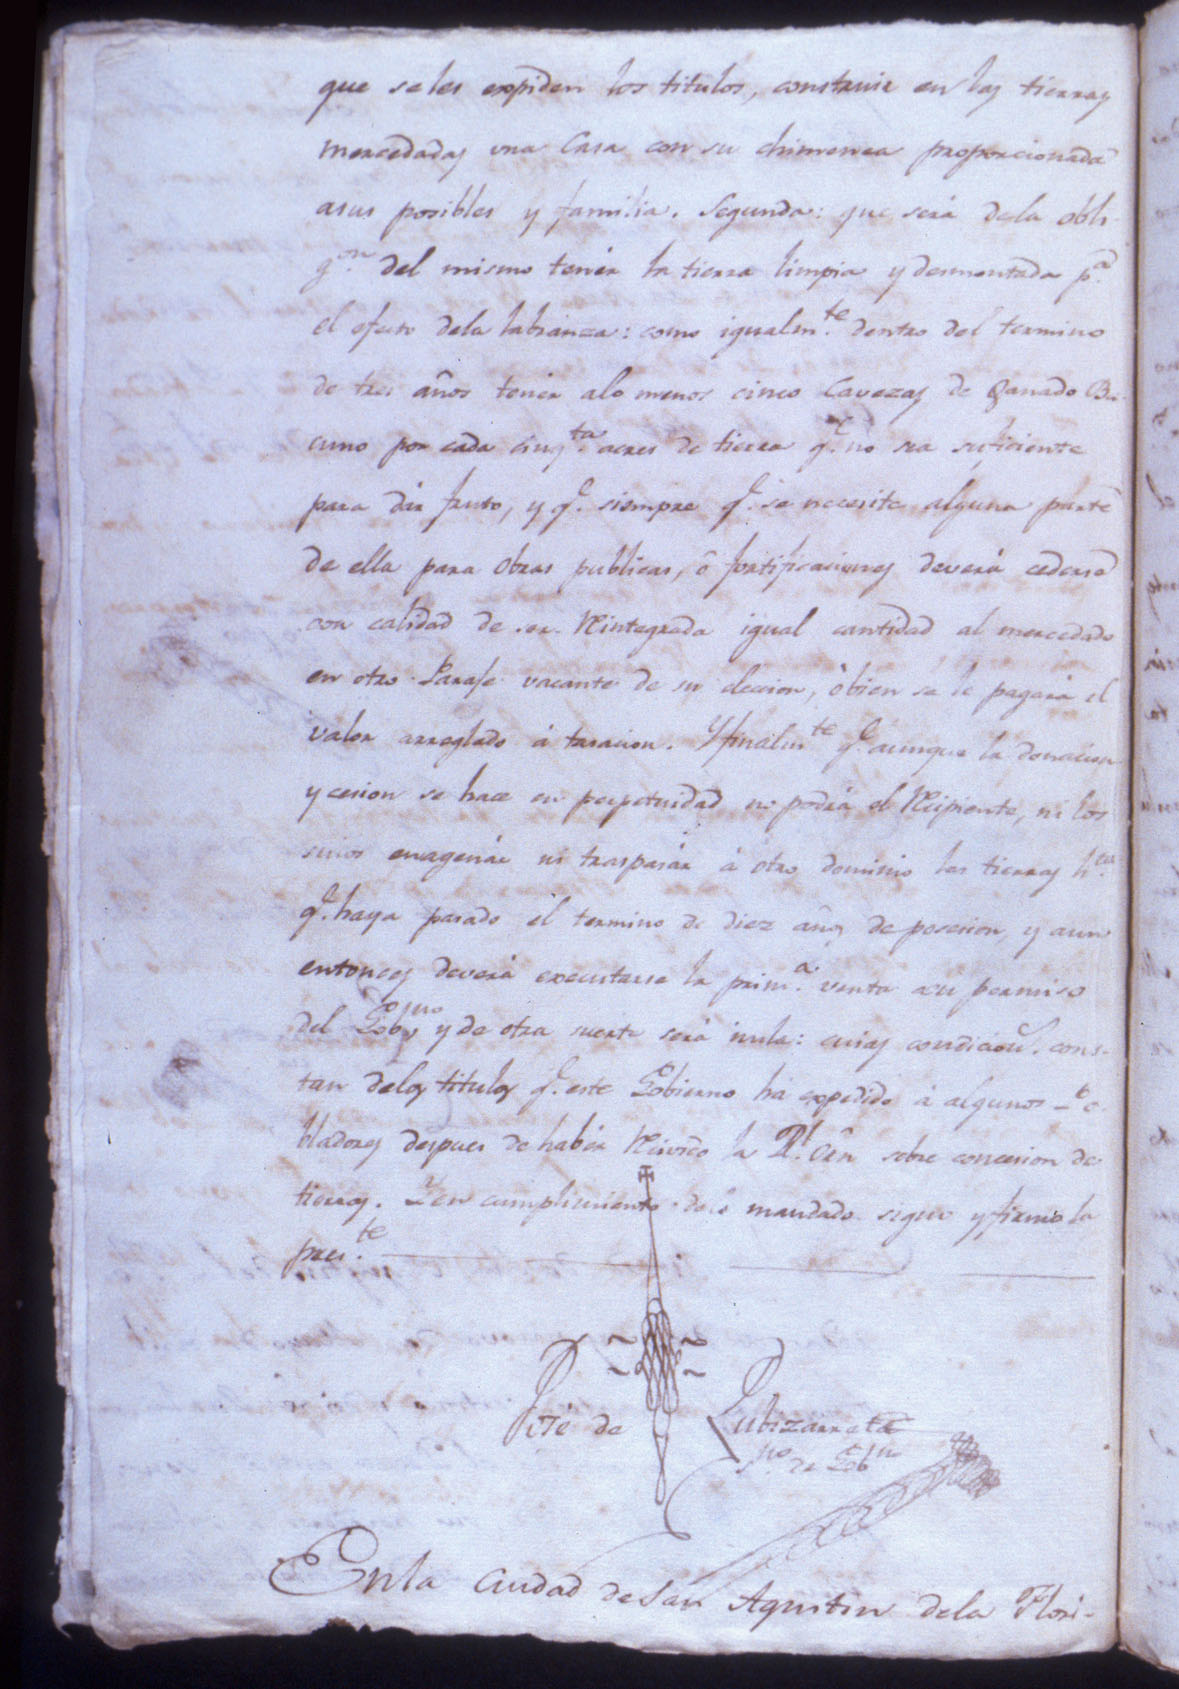 que se les expiden los titulos, construir en las tierras
mercedadas una Casa con su chimenea proporcionada
asus posibles y familia. Segunda: que será dela obli-
g.on del mismo tenér la tierra limpia y desmontada p.a
el efecto dela labranza: como igualm.te dentro del termino
de tres años tenér alo menos cinco Cavezas de Ganado Ba-
cuno por cada cinq.ta acres de tierra q.e no sea suficiente
para dár fruto, y q.e siempre q.e se necesite alguna parte
de ella para obras publicas, ô fortificaciones deverá cederse
con calidad de ser Reintegrada igual cantidad al mercedado
en otro Parage vacante de su eleccion, ô bien se le pagará el
valor arreglado á tasacion. Yfinalm.te q.e aunque la donacion
y cesion se hace en perpetuidad no podrá el Recipiente, ni los
suios enagenár ni traspasár á otro dominio las tierras h.ta
q.e haya pasado el termino de diez años de posecion, y aun
entonces deverá executarse la prim.a venta con permiso
del Gob.no y de otra suerte será nula: cuias condicion.s cons-
tan delos titulos q.e este Gobierno há expedido á algunos Po-
bladores despues de habér Recivido la R.l Orn sobre concesion de
tierras. Y en cumplimiento delo mandado signo y firmo la
pres.te
José de Zubizarreta
S.no de Gob.no
Enla Ciudad de San Agustin dela Flori-